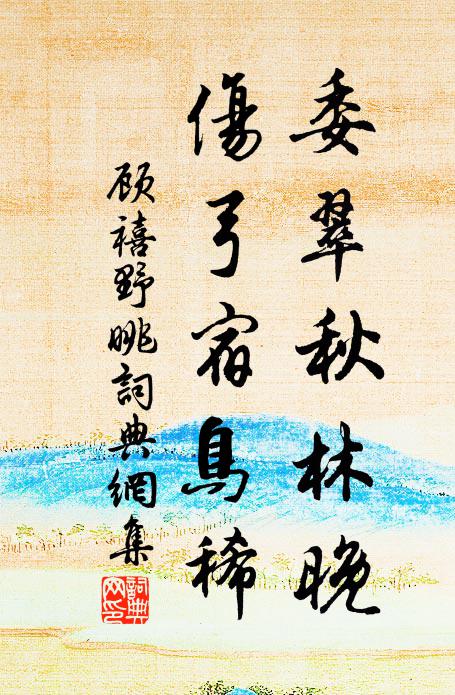 委翠秋林晚
傷弓宿鳥稀
顾禧野眺詞典網集
詞典网印